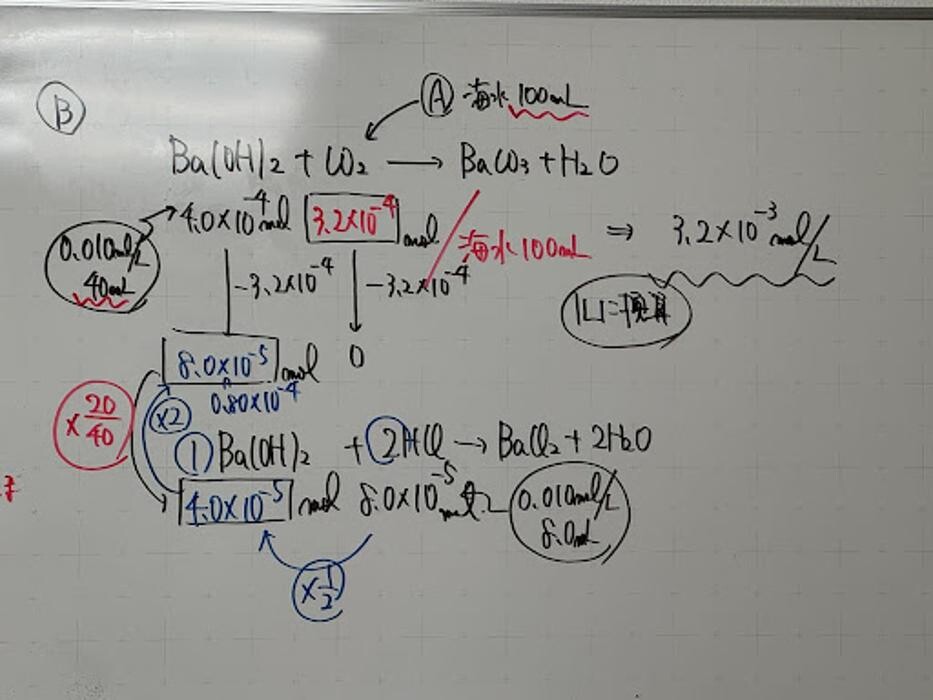 B
A 海水 100mL
Ba(OH)2 + CO2 → BaCO3 + H2O
4.0×10^-4 mol 3.2×10^-4 mol / 海水 100mL ⇒ 3.2×10^-3 mol/L
0.010mol/L
40mL
-3.2×10^-4 -3.2×10^-4
1Lに換算
8.0×10^-5 mol 0
0.80×10^-4
×20/40
×2
1 Ba(OH)2 + 2HCl → BaCl2 + 2H2O
4.0×10^-5 mol 8.0×10^-5 mol
0.010mol/L
8.0mL
×1/2